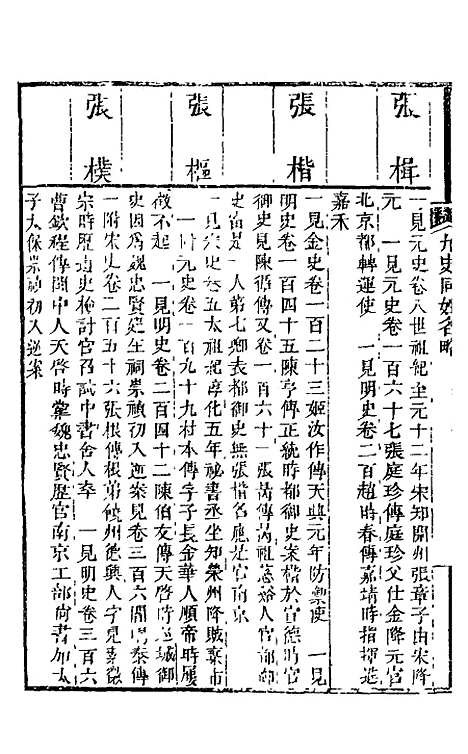 九史同姓名略
張楫
一見元史卷八世祖紀至元十二年宋知開州張章子由宋降
元　一見元史卷一百六十七張庭珍傳庭珍父仕金降元官
北京都轉運使　一見明史卷二百趙時春傳嘉靖時指揮
嘉禾
張楷
一見金史卷一百二十三姬汝作傳天興元年防禦使　一見
明史卷一百四十五陳亨傳正統時都御史案楷於宣德時官
御史見陳循傳又卷一百六十一張
張樞
一見宋史卷五太宗紀淳化五年祕書丞坐知榮州降賊棄市
一附元史卷一百九十九杜本傳字子長金華人順帝時屢
徵不起　一見明史卷二百四十二陳伯友傳天啓時巡城御
史因爲魏忠賢建生祠崇禎初入逆案見卷三百六閻鳴泰傳
張樸
一附宋史卷三百五十六張根傳根弟饒州德興人字見素徽
宗時歷遺史檢討官召試中書舍人卒　一見明史卷三百六
曹欽程傳閩中人天啓時黨魏忠賢歷官南京工部尚書加太
子太保崇禎初入逆案